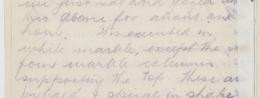 we first sat and gazed at
this above for about one
hour. It is executed in
white marble, except the
four marble columns
supporting the top these are
spiral in shape